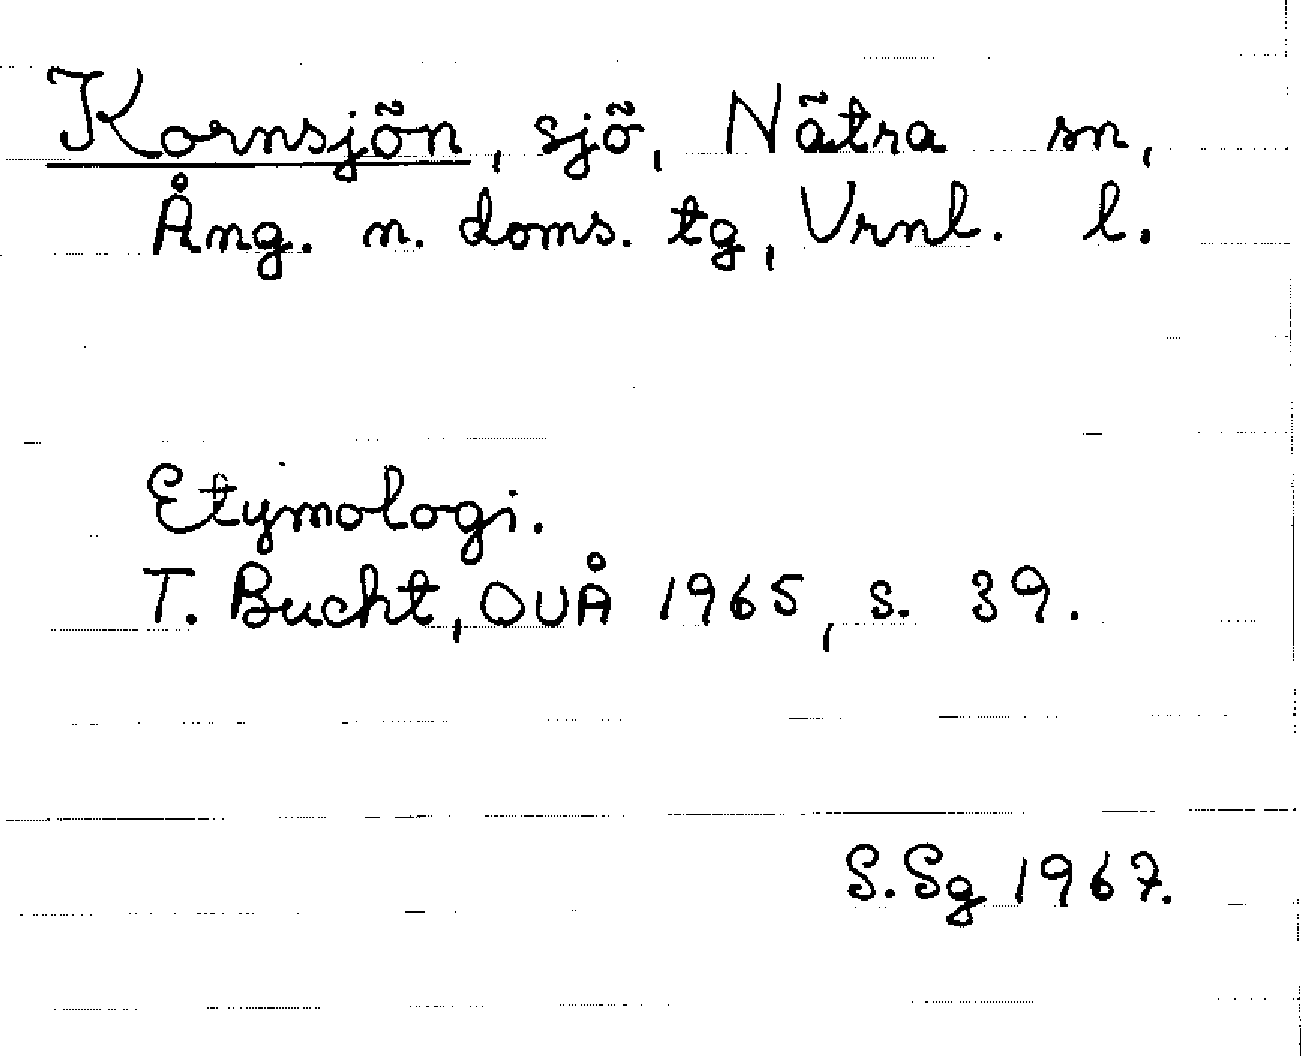 Kornsjön, sjö, Nätra sn,
Ång. n. doms. tg, Vrnl. l.
Etymologi.
T. Bucht, OUÅ 1965, s. 39.
S.Sg 1967.